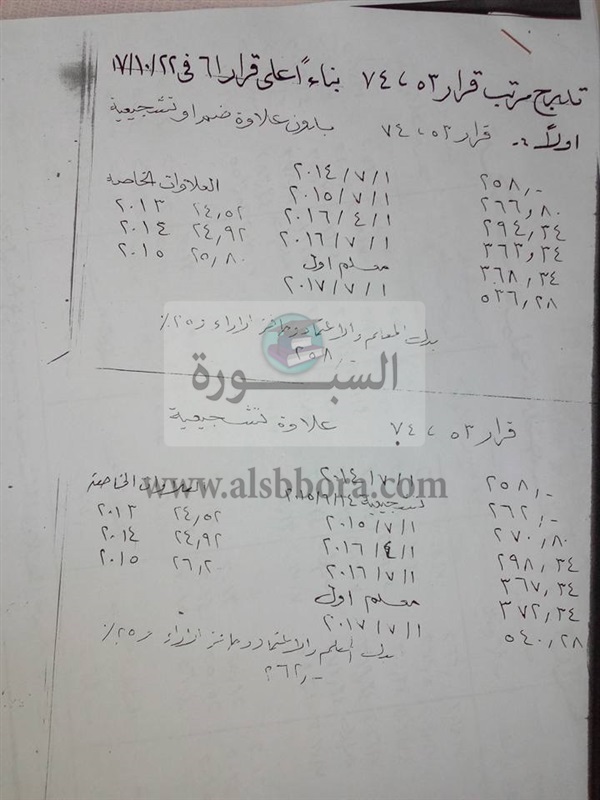 تدرج مرتب قرار ٥٣ ، ٧٤ بناءً على قرار ٦١ فى ١٧/١٠/٢٢
اولاً :- قرار ٥٣ ، ٧٤ بدون علاوة ضم او تشجيعية
٢٥٨,- ٢٠١٤/٧/١ العلاوات الخاصة
٢٦٦,٨٠ ٢٠١٥/٧/١ ٢٤,٥٢ ٢٠١٣
٢٩٤,٣٤ ٢٠١٦/٤/١ ٢٤,٩٢ ٢٠١٤
٣٦٣,٣٤ ٢٠١٦/٧/١ ٢٥,٨٠ ٢٠١٥
٣٦٨,٣٤ معلم اول
٥٣٦,٢٨ ٢٠١٧/٧/١
بدل المعلم والاعتماد وحافز الاداء و ٢٥٪
٢٥٨,-
السبورة
قرار ٥٣ ، ٧٤ علاوة تشجيعية
www.alsbbora.com
٢٥٨,- ٢٠١٤/٧/١ العلاوات الخاصة
٢٦٢,- تشجيعية ٢٠١٥/٦/١٤ ٢٤,٥٢ ٢٠١٣
٢٧٠,٨٠ ٢٠١٥/٧/١ ٢٤,٩٢ ٢٠١٤
٢٩٨,٣٤ ٢٠١٦/٤/١ ٢٦,٢٠ ٢٠١٥
٣٦٧,٣٤ ٢٠١٦/٧/١
٣٧٢,٣٤ معلم اول
٥٤٠,٢٨ ٢٠١٧/٧/١
بدل المعلم والاعتماد وحافز الاداء و ٢٥٪
٢٦٢,-